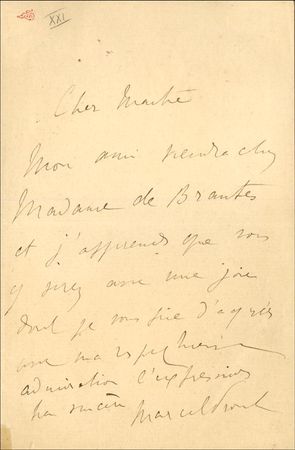 XXI
Cher Maître
Mon ami viendra chez
Madame de Brantes
et j'apprends que vous
y serez avec une joie
dont je vous prie d'agréer
avec ma respectueuse
admiration l'expression
la sincère Marcel Proust